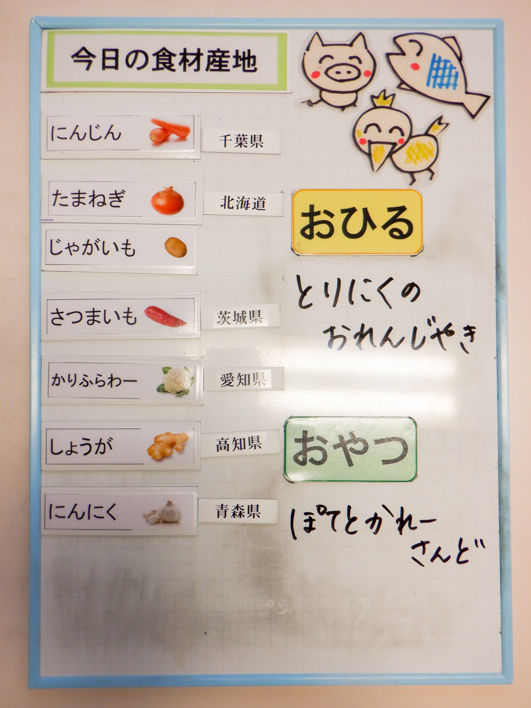 今日の食材産地
にんじん 千葉県
たまねぎ 北海道
じゃがいも
さつまいも 茨城県
かりふらわー 愛知県
しょうが 高知県
にんにく 青森県
おひる
とりにくの
おれんじやき
おやつ
ぽてとかれー
さんど